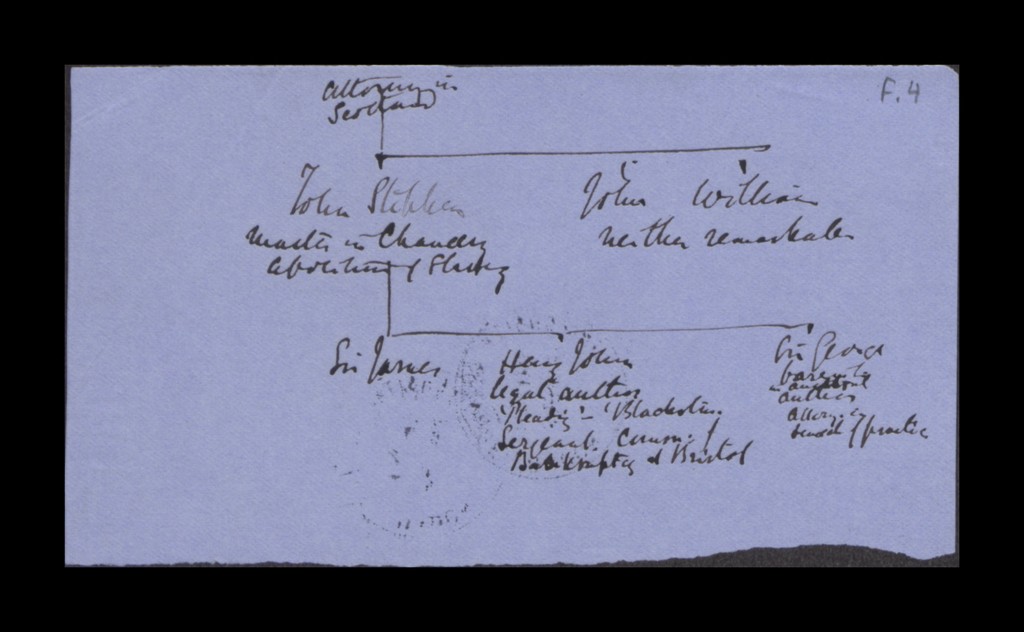 F. 4
Attorney in
Scotland
John Stephen
John William
Master in Chancery
neither remarkable
abolition of Slavery
Sir James
Henry John
legal author
'Pleading' – 'Blackstone'
Sergeant. Comm. of
Bankruptcy at Bristol
Sir George
barrister
author
attorney
branch of practice